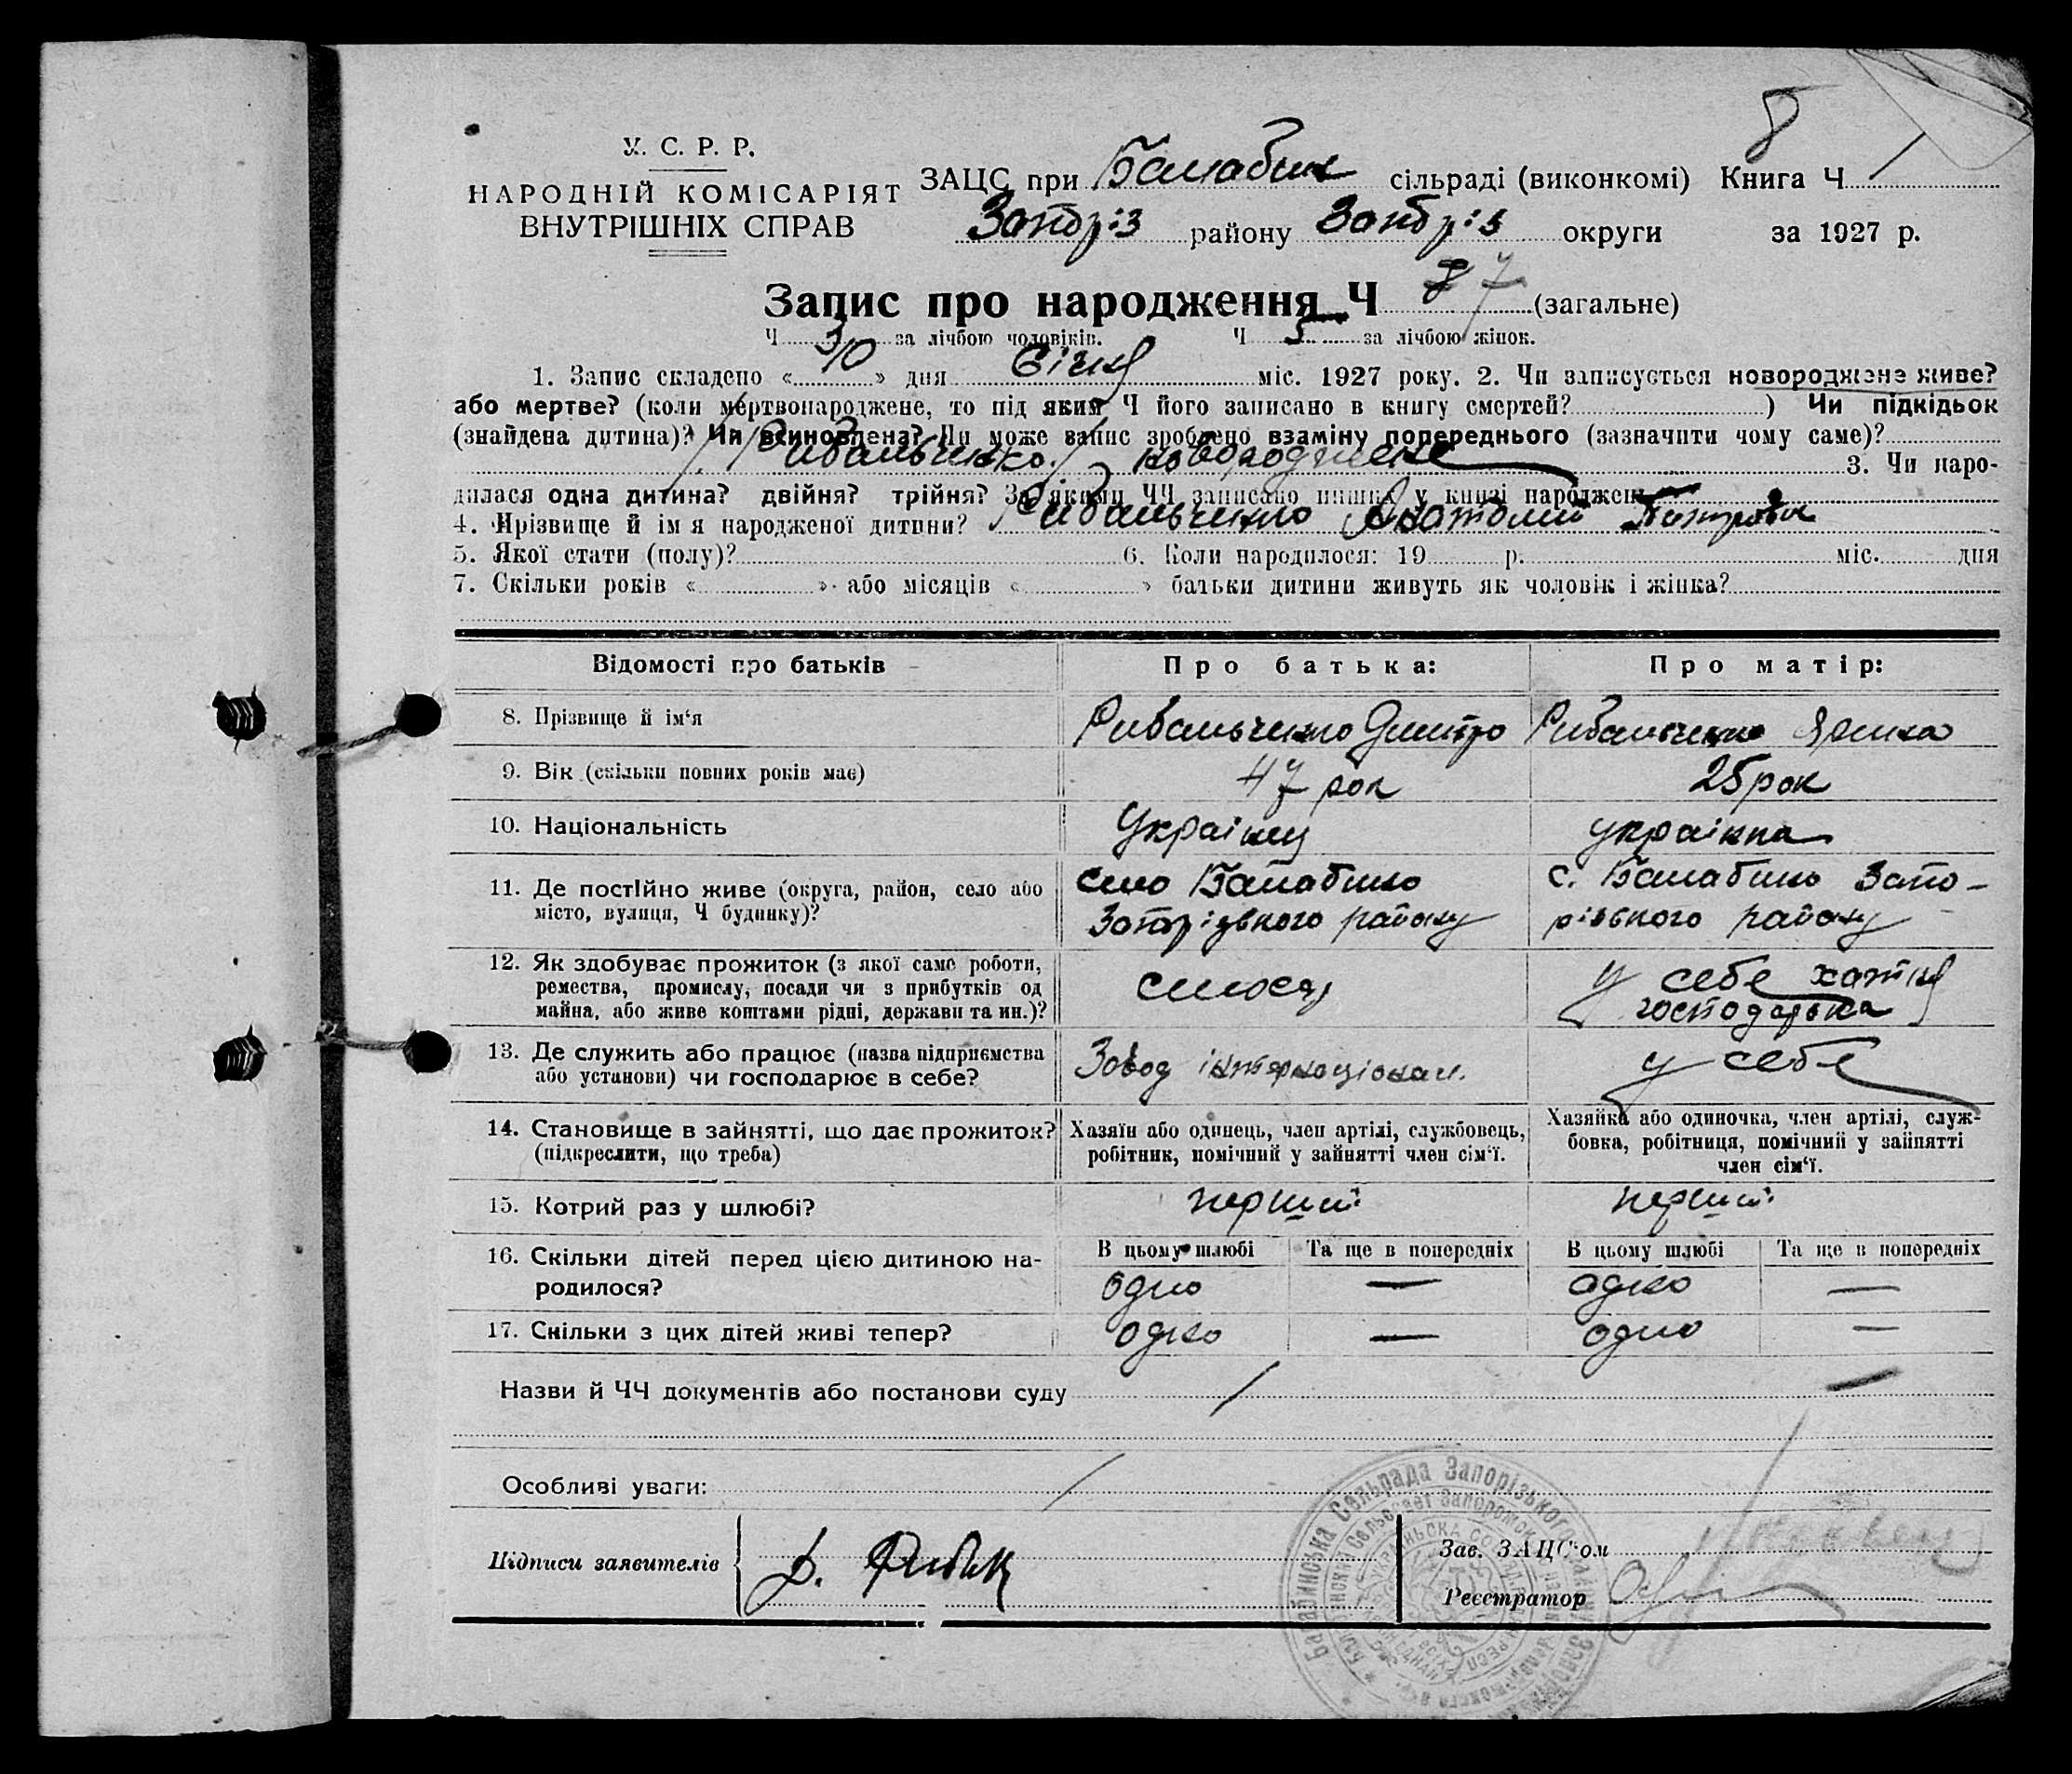 8
У. С. Р. Р.
НАРОДНІЙ КОМІСАРІЯТ
ВНУТРІШНІХ СПРАВ
ЗАЦС при Балабин сільраді (виконкомі) Книга Ч 1
Запоріз району Запоріз округи за 1927 р.
Запис про народження Ч 7 (загальне)
Ч 3 за лічбою чоловіків. Ч 5 за лічбою жінок.
1. Запис складено « 10 » дня Січня міс. 1927 року. 2. Чи записується новороджене живе?
або мертве? (коли мертвонароджене, то під яким Ч його записано в книгу смертей? ) Чи підкідьок
(знайдена дитина)? Чи всиновлена? Чи може запис зроблено взаміну попереднього (зазначити чому саме)?
Рибальченко новороджене 3. Чи наро-
дилася одна дитина? двійня? трійня? За якими ЧЧ записано инших у книзі народжень
4. Прізвище й імя народженої дитини? Рибальченко Анатолий
5. Якої стати (полу)? 6. Коли народилося: 19 р. міс. дня
7. Скільки років « » або місяців « » батьки дитини живуть як чоловік і жінка?
Відомості про батьків Про батька: Про матір:
8. Прізвище й ім‘я Рибальченко Дмитро Рибальченко
9. Вік (скільки повних років має) 47 рок 25 рок
10. Національність Українц українка
11. Де постійно живе (округа, район, село або місто, вулиця, Ч будинку)? село Балабино Запорізького району с. Балабино Запо-
різького району
12. Як здобуває прожиток (з якої саме роботи,
ремества, промислу, посади чи з прибутків од
майна, або живе коштами рідні, держави та ин.)? у себе хатня
господарька
13. Де служить або працює (назва підприємства
або установи) чи господарює в себе? Завод інтернаціонал. у себе
14. Становище в зайнятті, що дає прожиток?
(підкреслити, що треба)
Хазяїн або одинець, член артілі, службовець,
робітник, помічний у зайнятті член сім‘ї.
Хазяйка або одиночка, член артілі, служ-
бовка, робітниця, помічний у зайнятті
член сім‘ї.
15. Котрий раз у шлюбі? перший перший
16. Скільки дітей перед цією дитиною на-
родилося?
В цьому шлюбі Та ще в попередніх В цьому шлюбі Та ще в попередніх
одно — одно —
17. Скільки з цих дітей живі тепер? одно — одно —
Назви й ЧЧ документів або постанови суду —
Особливі уваги:
Підписи заявителів
Зав. ЗАЦС‘ом
Реєстратор
Балабинська Сельрада Запорізького